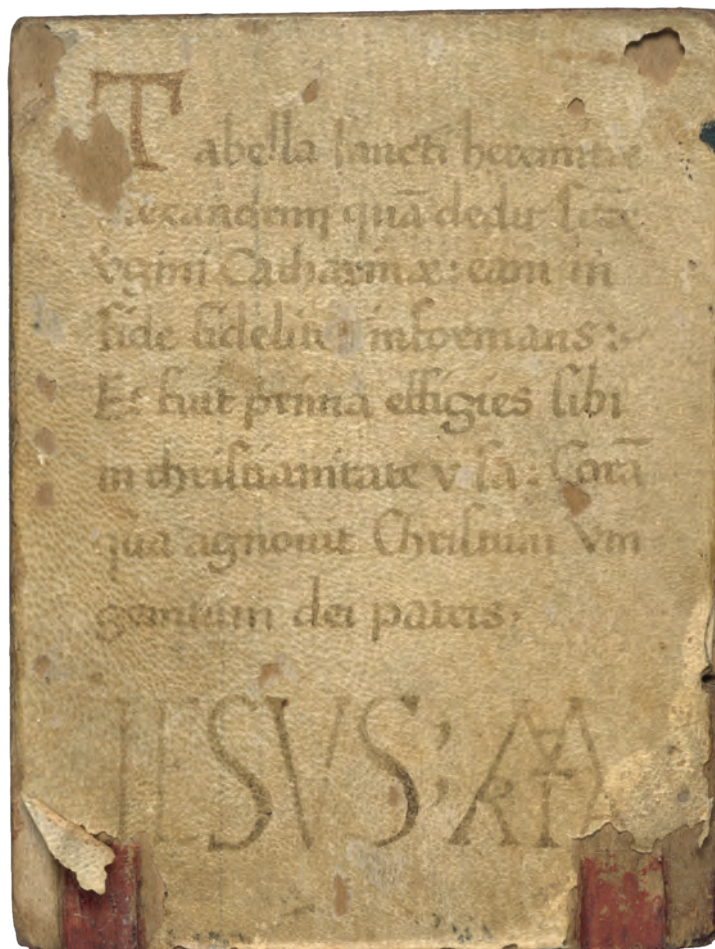 Tabella sancti heremitæ
quā dedit
v̾gini Catharinæ: eam in
fide fideliter informans:
Et fuit prima effigies sibi
in christianitate visa: Corā
qua agnouit Christum vni
genitum dei patris,
IESVS; MARIA